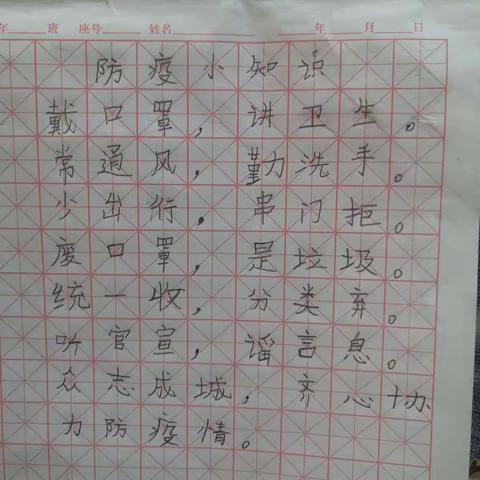 年 班 座号 姓名 年 月 日
防疫小知识
戴口罩,讲卫生。
常通风,勤洗手。
少出行,串门拒。
废口罩,是垃圾。
统一收,分类弃。
听官宣,谣言息。
众志成城,齐心协
力防疫情。